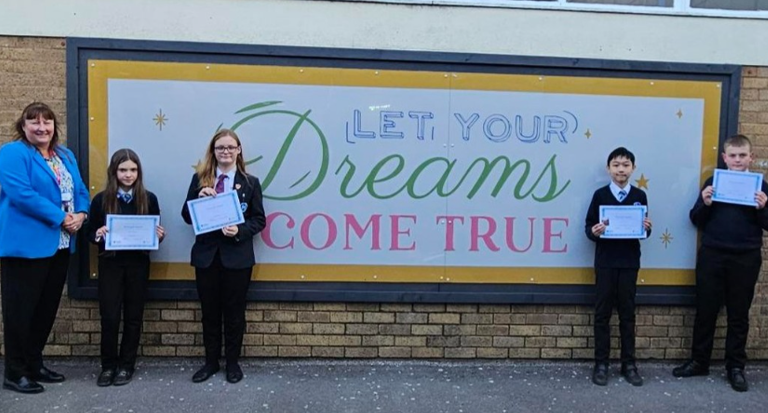 LET YOUR
Dreams
COME TRUE